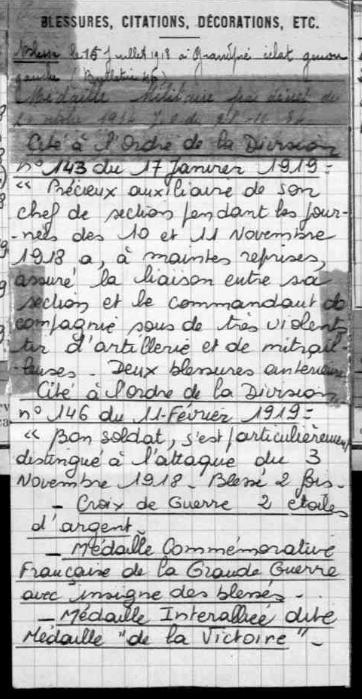 BLESSURES, CITATIONS, DÉCORATIONS, ETC.
Blessé le 15 Juillet 1918 à éclat
gauche (Bulletin
Médaille Militaire par décret du
Cité à l'Ordre de la Division
n° 143 du 17 Janvier 1919 =
« Précieux auxiliaire de son
chef de section pendant les jour-
-nées des 10 et 11 Novembre
1918 a, à maintes reprises,
assuré la liaison entre sa
section et le commandant de
compagnie sous de très violents
tir d'artillerie et de mitrail
leuses. Deux blessures antérieures
Cité à l'Ordre de la Division
n° 146 du 11-Février 1919 =
« Bon soldat, s'est particulièrement
distingué à l'attaque du 3
Novembre 1918. Blessé 2 fois.
- Croix de Guerre 2 étoiles
d'argent -
- Médaille Commémorative
Française de la Grande Guerre
avec insigne des blessés -
- Médaille Interalliée dite
Médaille "de la Victoire" -